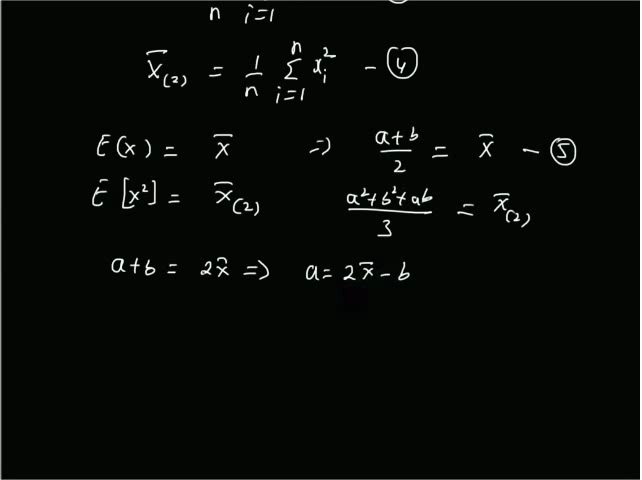 n i=1
x̄₍₂₎ = 1/n Σⁿᵢ₌₁ xᵢ² – ④
E(x) = x̄ ⇒ (a+b)/2 = x̄ – ⑤
E[x²] = x̄₍₂₎ (a²+b²+ab)/3 = x̄₍₂₎
a+b = 2x̄ ⇒ a = 2x̄ – b